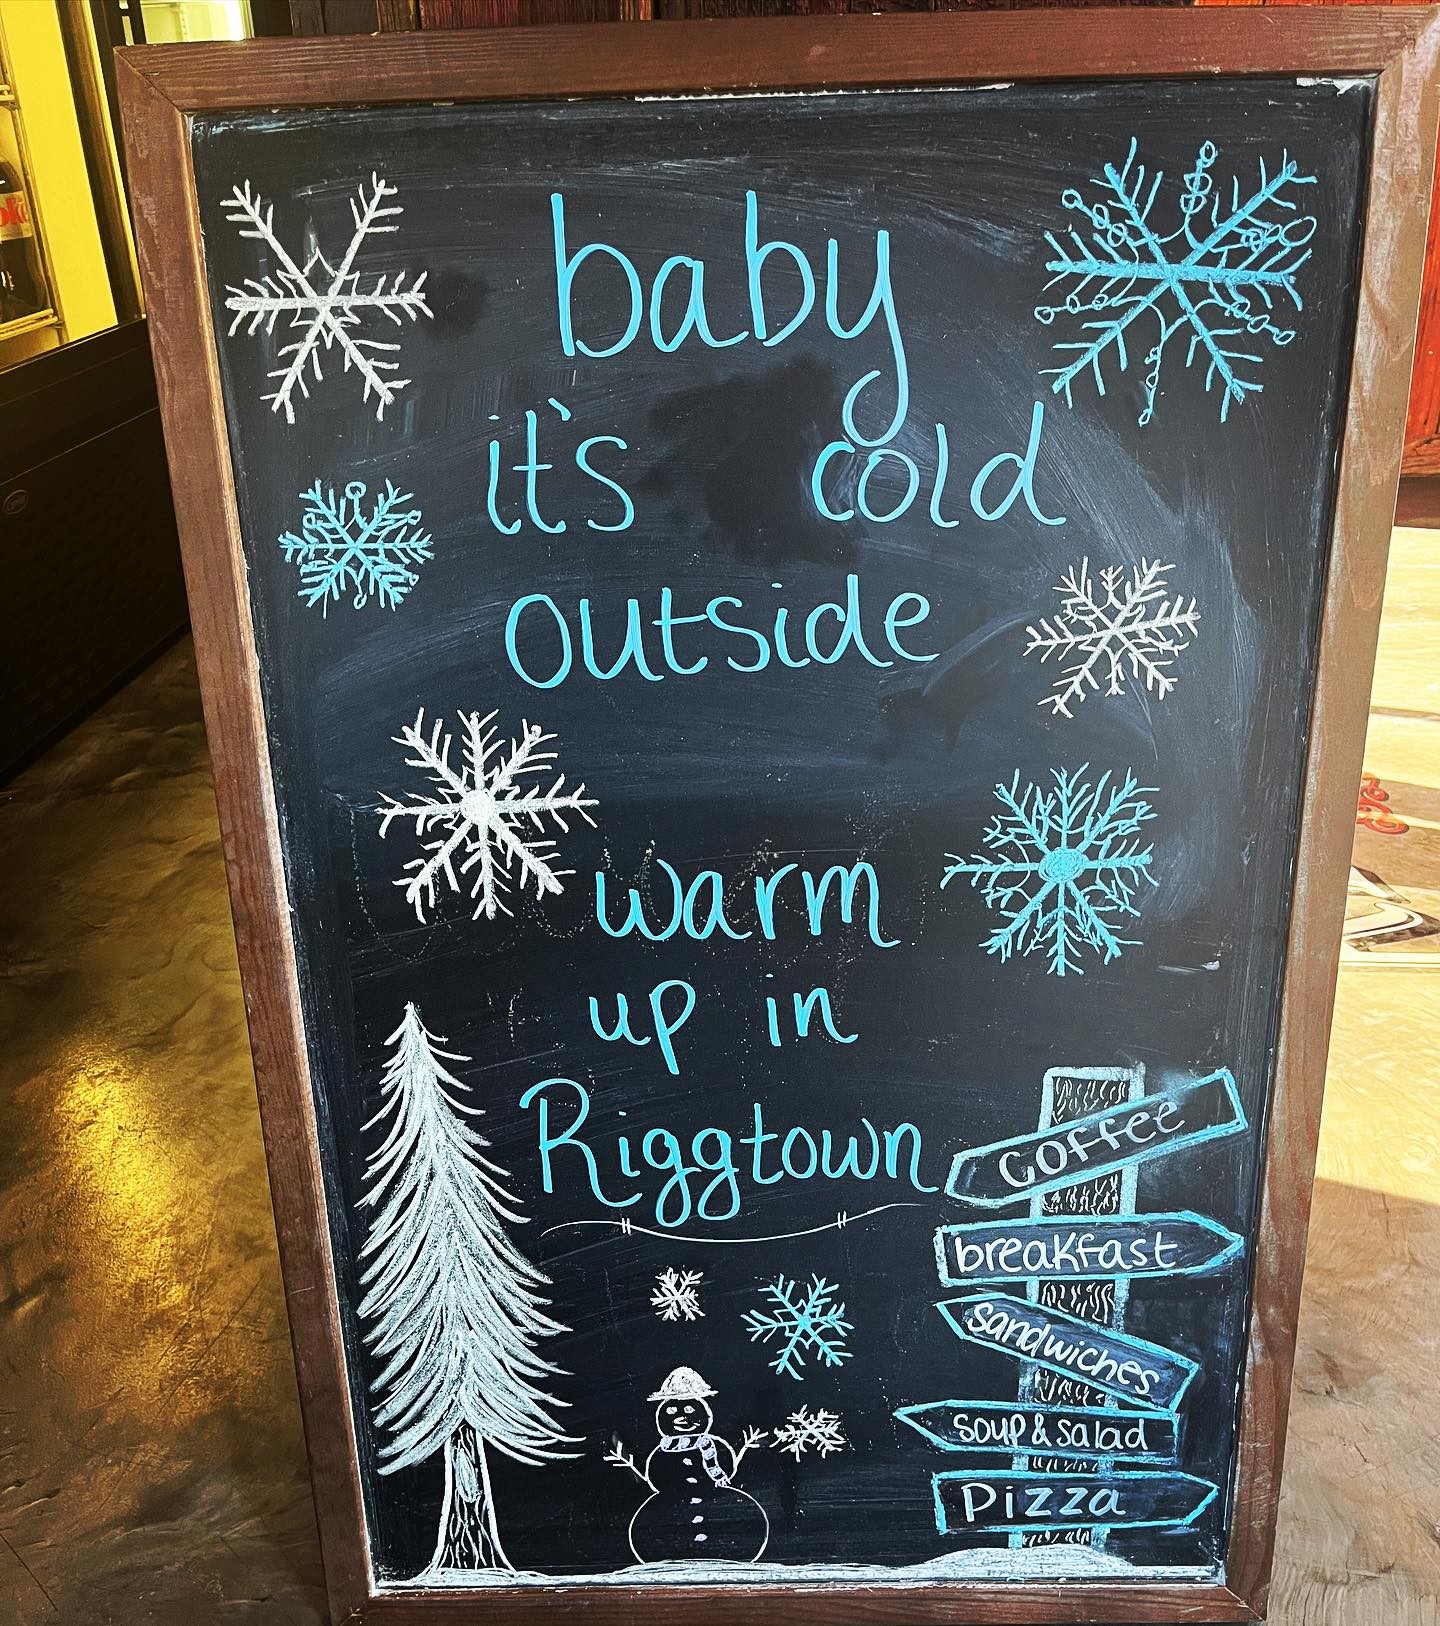 baby
it's cold
outside
warm
up in
Riggtown
Coffee
breakfast
sandwiches
soup & salad
Pizza